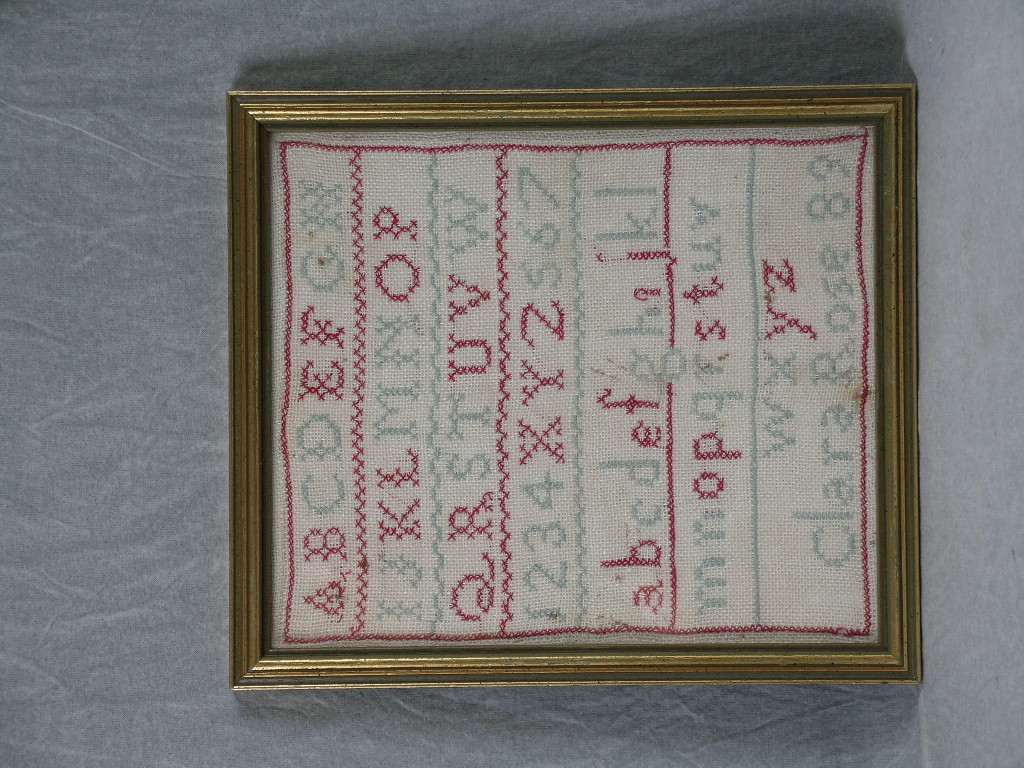 ABCDEFGH
IJKLMNOP
QRSTUVW
1234XYZ567
abcdefghijkl
mnopqrstuv
wxyz
Clara Rose 89